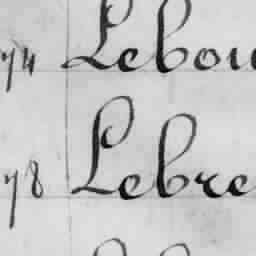 74 Lebou
78 Lebre